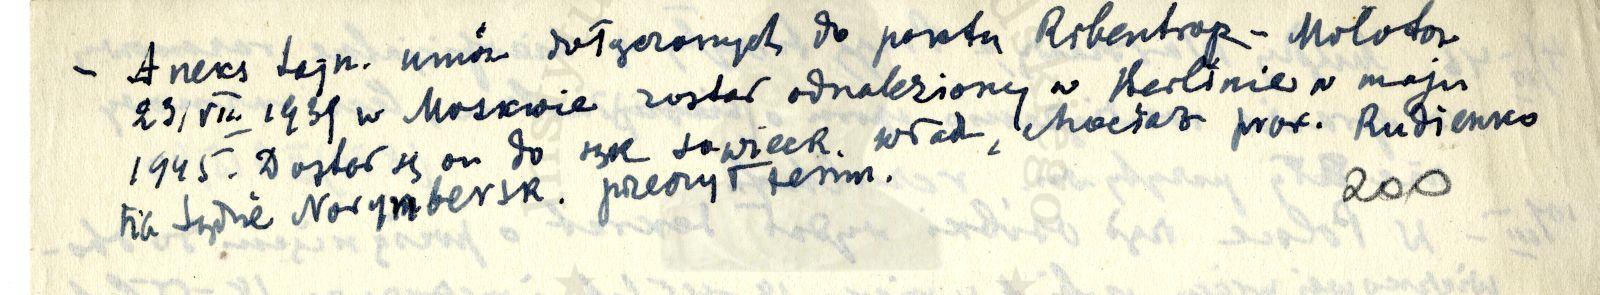 - Aneks tajn. umów dołączonych do paktu Ribentrop - Mołotow
23/VIII 1939 w Moskwie został odnaleziony w Berlinie w maju
1945. Dostał się on do rąk sowieck. władz, chociaż pror. Rudienko
na Sądzie Norymbersk. przeczył temu.
200